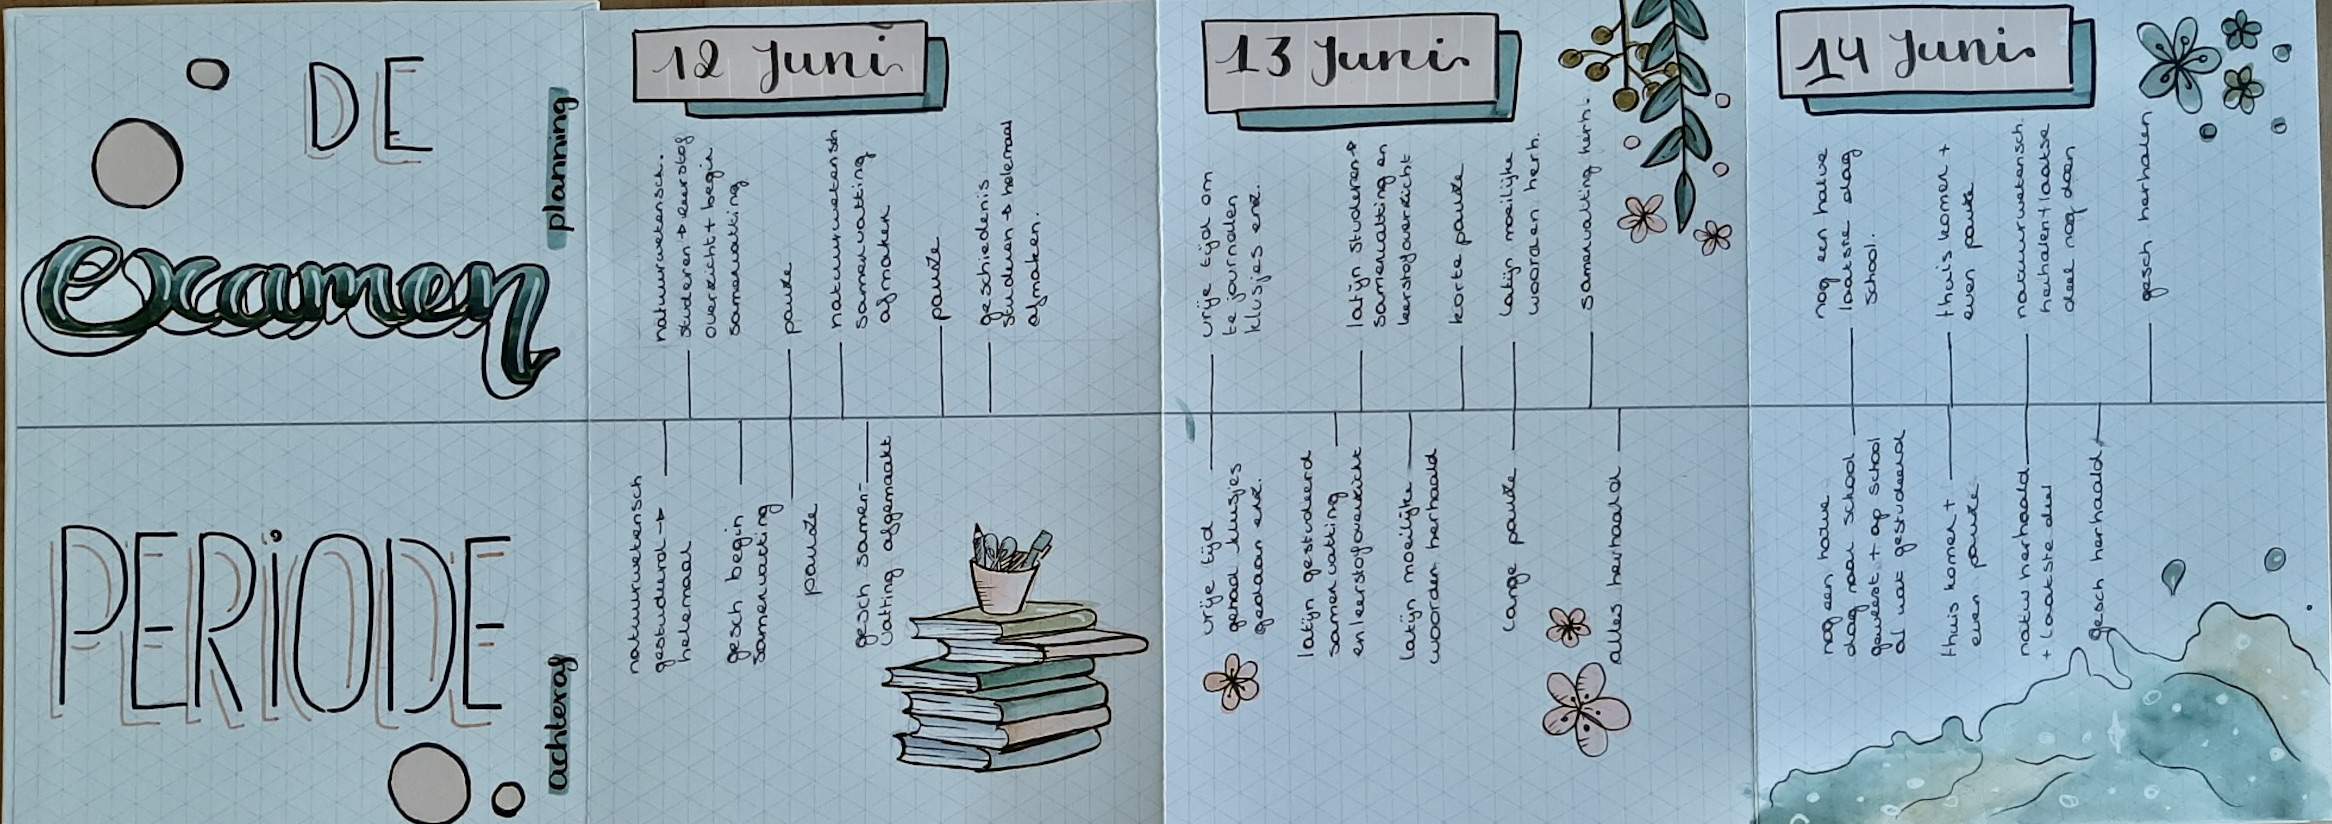 DE
examen
PERIODE
planning
achteraf
12 Juni
natuurwetensch.
studeren → leerstof
overzicht + begin
samenvatting
pauze
natuurwetensch
samenvatting
afmaken
pauze
geschiedenis
studeren → helemaal
afmaken.
natuurwetensch
gestudeerd →
helemaal
gesch begin
samenvatting
pauze
gesch samen-
vatting afgemaakt
13 Juni
vrije tijd om
te journalen
klusjes enz.
latijn studeren →
samenvatting en
leerstofoverzicht
korte pauze
latijn moeilijke
woorden herh.
samenvatting herh.
vrije tijd
gehad klusjes
gedaan enz.
latijn gestudeerd
samenvatting
en leerstofoverzicht
latijn moeilijke
woorden herhaald
lange pauze
alles herhaald
14 Juni
nog een halve
laatste dag
school.
thuis komen +
even pauze
natuurwetensch.
herhalen + laatste
deel nog doen
gesch herhalen
nog een halve
dag naar school
geweest + op school
al wat gestudeerd
thuis komen +
even pauze
natuw herhaald
+ laatste deel
gesch herhaald